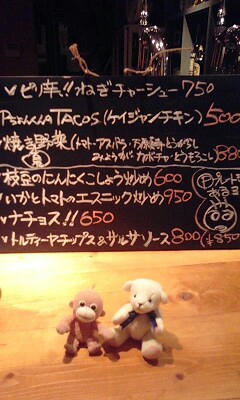 ピリ辛!!ねぎチャーシュー 750
TACOS(ケイジャンチキン) 500
焼き野菜(トマト・アスパラ・万願寺とうがらし
みょうが カボチャ・とうもろこし) 880
枝豆のにんにくこしょう炒め 600
いかとトマトのエスニック炒め 950
ナチョス!! 650
トルティーヤチップス&サルサソース 800(¥850